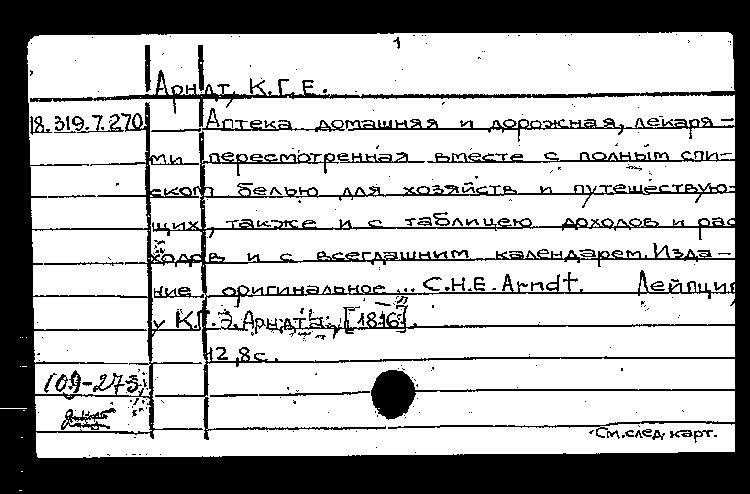 1
Арндт, К.Г.Е.
18.319.7.270 Аптека домашняя и дорожная, лекаря-
ми пересмотренная вместе с полным спи-
ском белью для хозяйств и путешествую-
щих, также и с таблицею доходов и рас
ходов и с всегдашним календарем. Изда-
ние оригинальное ... C.H.E. Arndt. Лейпциг
у К.Г.Э. Арндты, [1816].
12,8с.
109-273
См. след. карт.